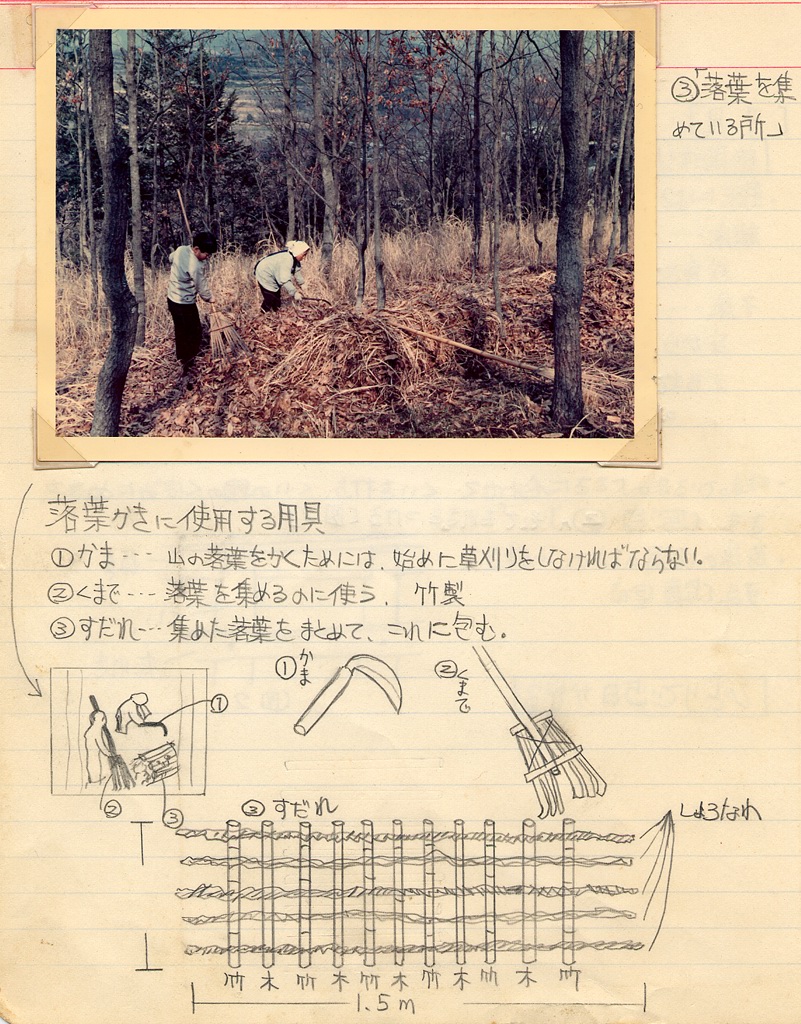 ③「落葉を集
めている所」
落葉かきに使用する用具
①かま--- 山の落葉をかくためには、始めに草刈りをしなければならない。
②くまで--- 落葉を集めるのに使う、竹製
③すだれ--- 集めた落葉をまとめて、これに包む。
①かま
②くまで
①
②
③
③すだれ
しゅろなわ
竹 木 竹 木 竹 木 竹 木 竹 木 竹
1.5m